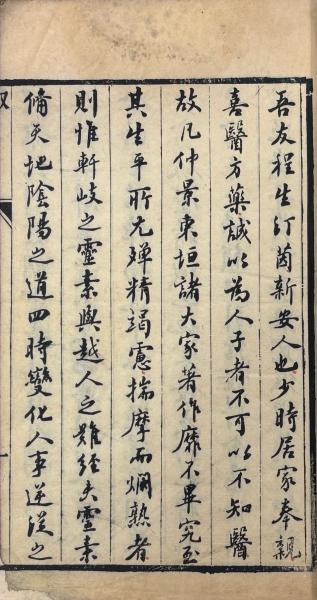 吾友程生汀茵新安人也少時居家奉親
喜醫方藥誠以為人子者不可以不知醫
故凡仲景東垣諸大家著作靡不畢究至
其生平所尤殫精竭慮揣摩而爛熟者
則惟軒岐之靈素與越人之難經夫靈素
備天地陰陽之道四時變化人事逆從之